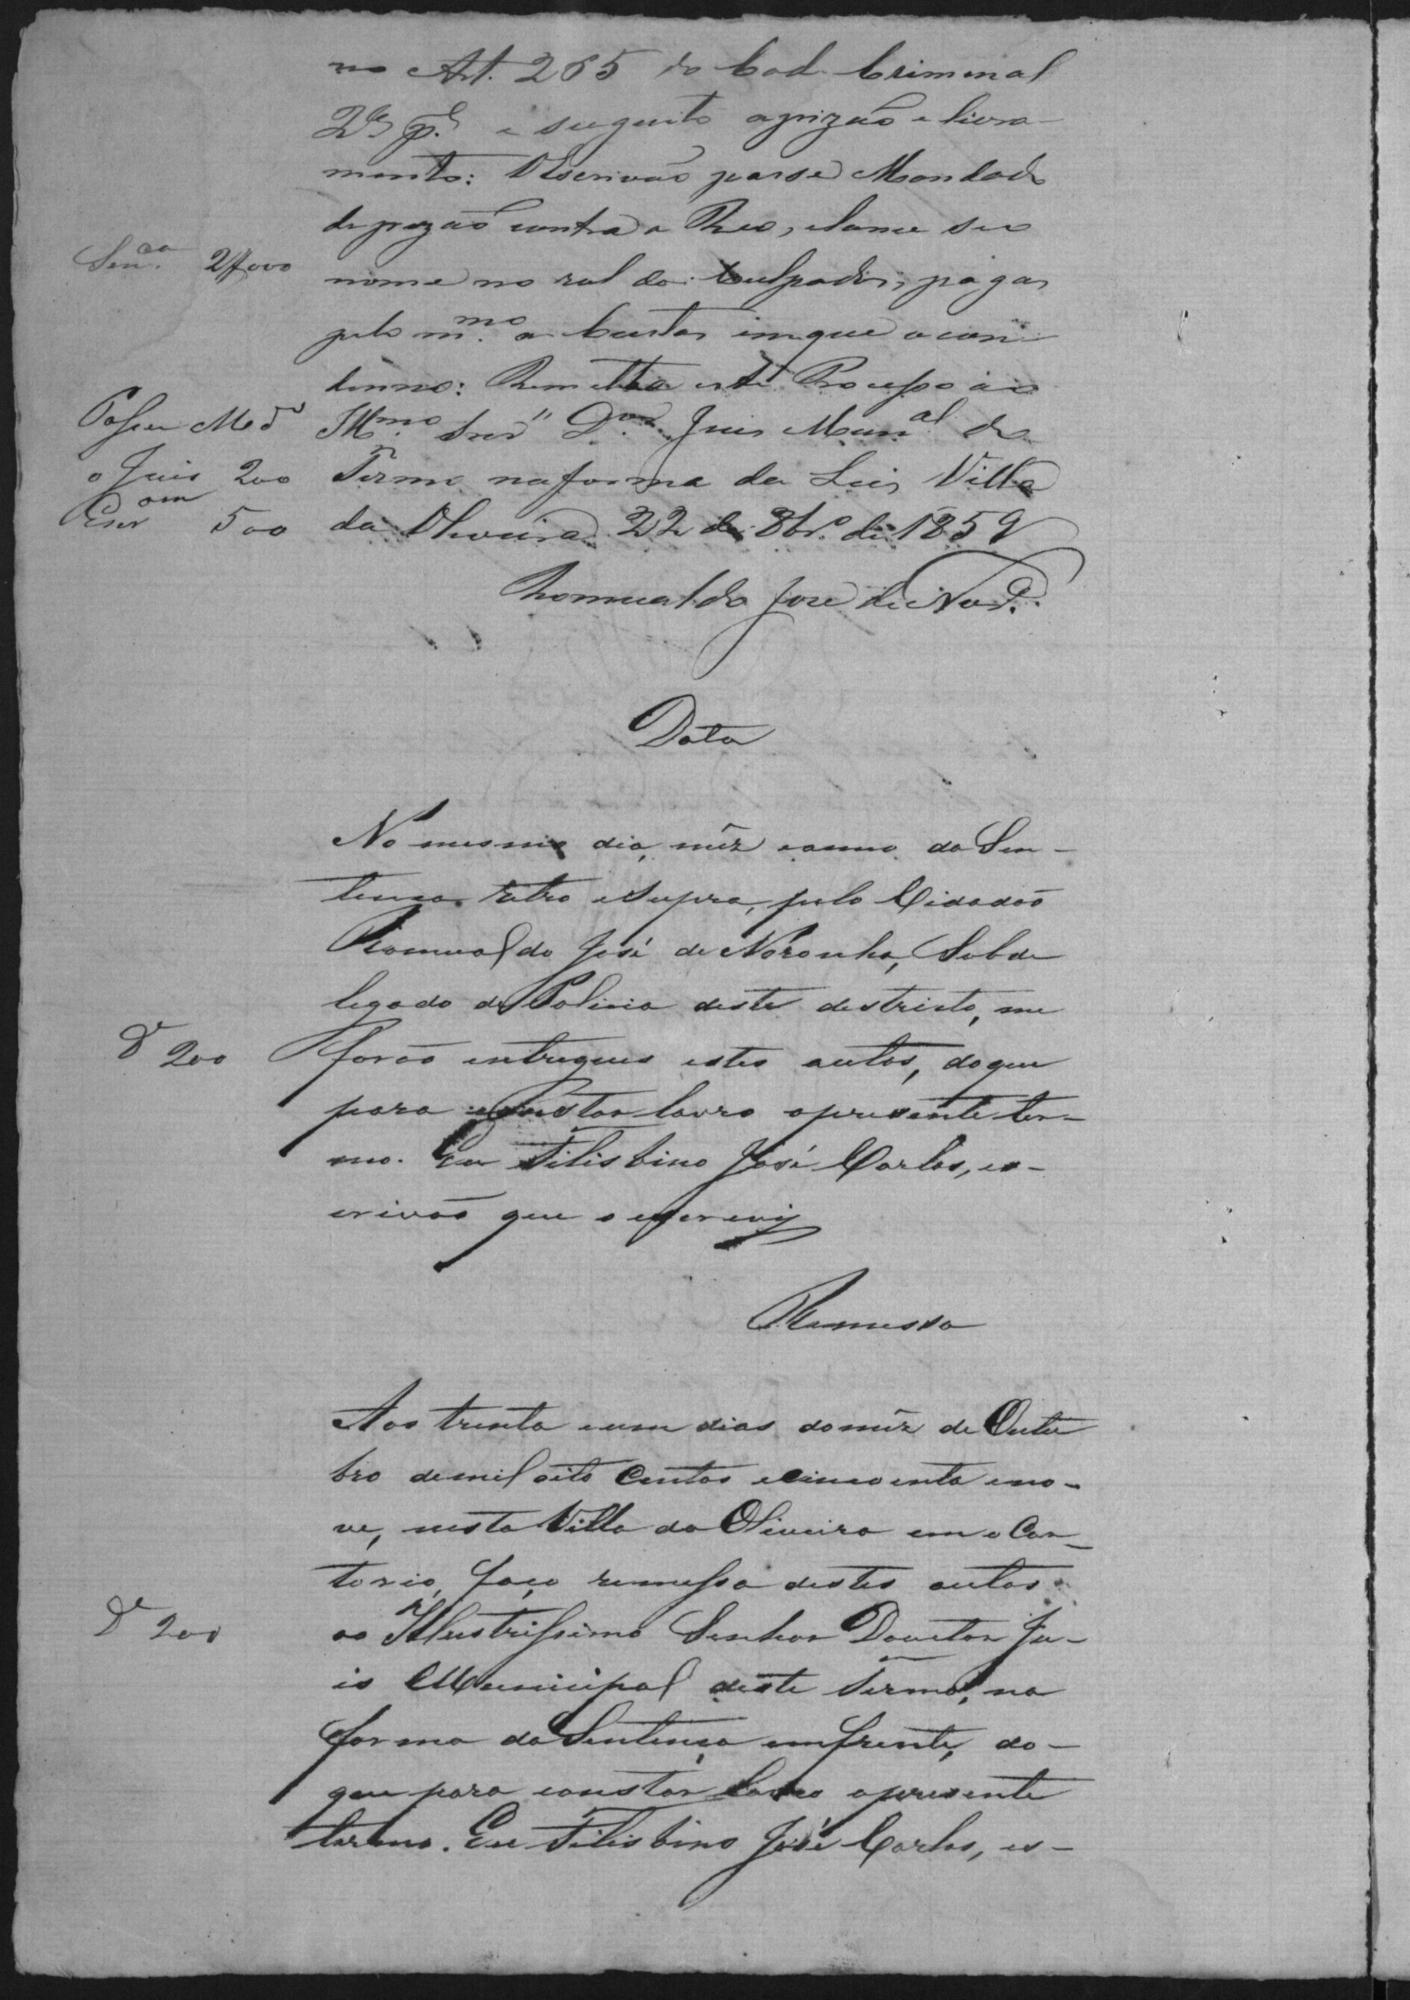 no Art. 265 do Cod. Criminal
2.ª p.e e sugeito aprizão e livra-
mento: OEscrivão passe Mandado
de prizão contra o Reo, elance seu
Sen.ca 2$000
nome no rol do Culpados, pagas
pelo m.mo as Custas em que o con-
denno: Remetta este Processo ao
Passar Md.o
Ill.mo Snr. D.or Juis Mun.al do
o Juis 200
Termo na forma da Lei, Villa
Escr.am 500
da Oliveira 22 de 8br.o de 1859
Romualdo Jose de Nor.a
Data
No mesmo dia, mêz eanno da Sen-
tença retro esupra, pelo Cidadão
Romualdo José de Noronha, Subde
legado de Policia deste destricto, me
D.e 200
forão entregues estes autos, doque
para constar lavro opresente ter-
mo. Eu Filisbino José Carlos, es-
crivão que o escrevy
Remessa
Aos trinta eum dias domêz de Outu
bro demil oito centos ecincoenta eno-
ve, nesta Villa da Oliveira em o Car-
torio, faço remessa destes autos
D.e 200
ao Illustrissimo Senhor Doutor Ju-
is Municipal deste Termo, na
forma da Sentença emfrente, do-
que para constar lavro opresente
termo. Eu Filisbino José Carlos, es-